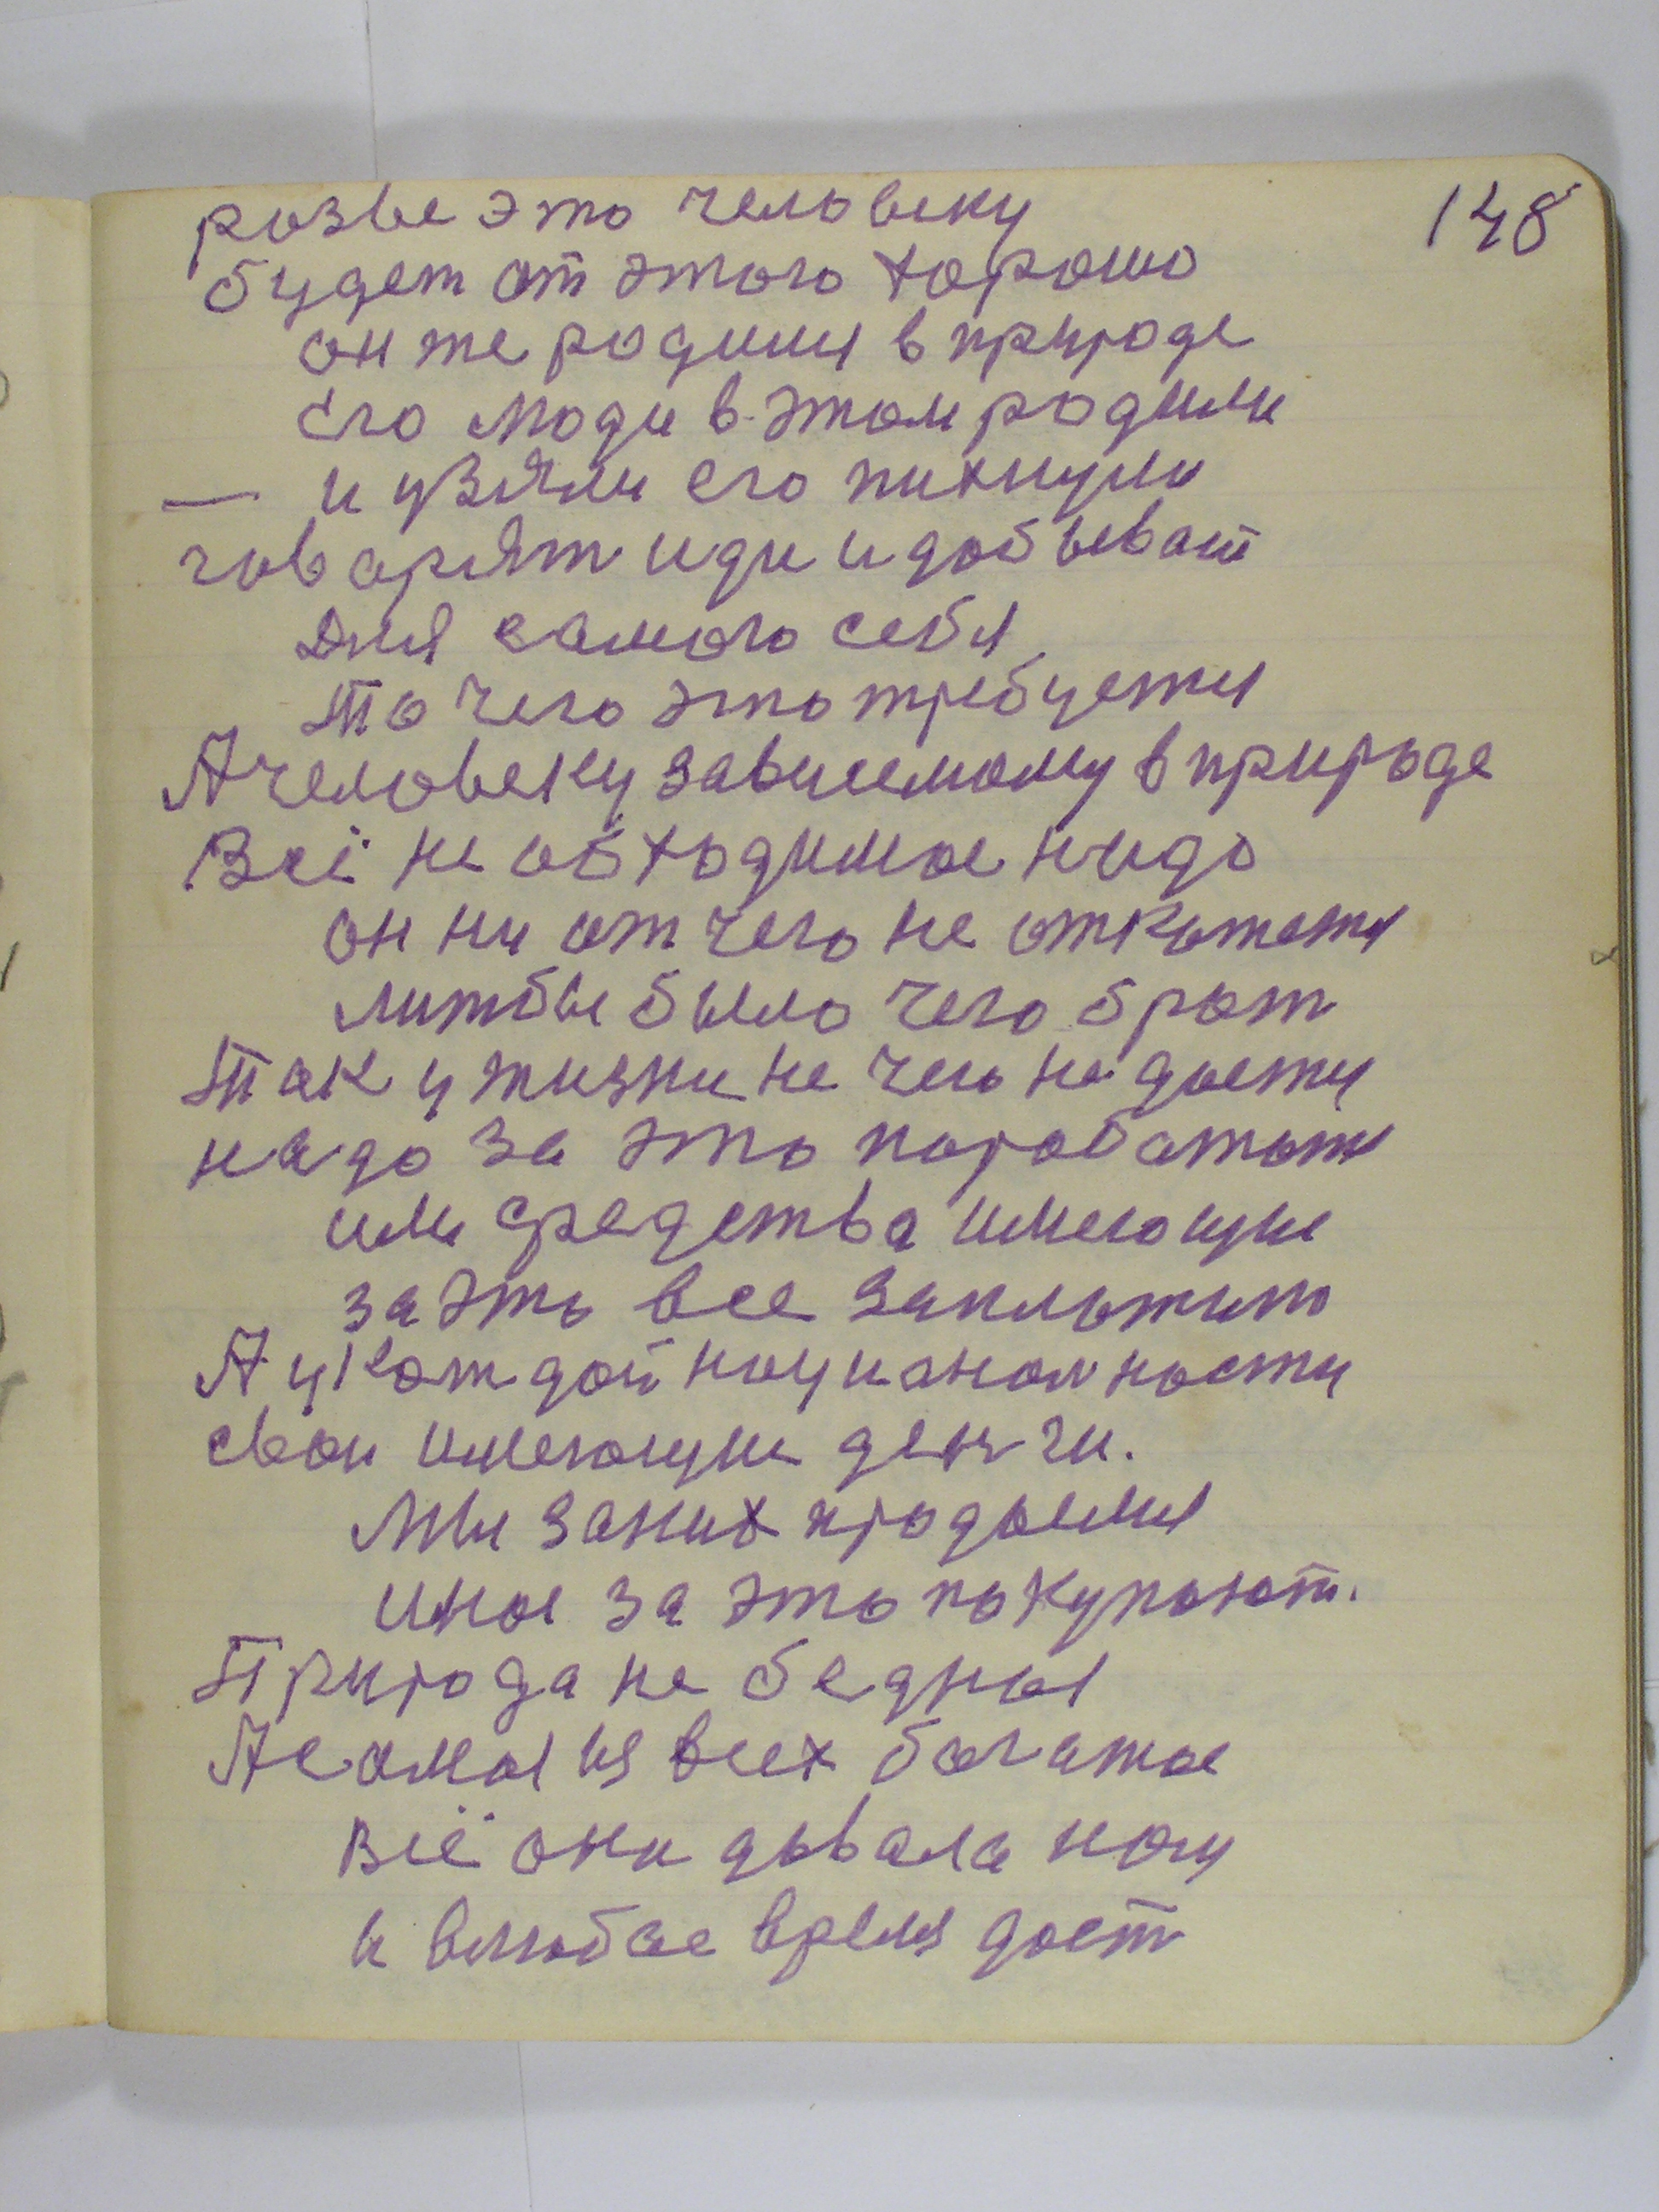 148
розве это человеку
будет от этого хорошо
он же родился в природе
Его люди в этом родили
— и узяли его пихнули
говарят иди и добывай
Для самого себя
То чего это требуется
А человеку зависемому в природе
Всё не обходимое надо
он ни от чего не откажется
лижбы было чего брат
Так у жизни не чего не дается
надо за это поработать
или средства имеющие
за это все заплатит
А у каждой нацианальности
свои имеющие деньги.
Мы за них продаемся
иное за это покупают.
Природа не бедная
А самая из всех богатое
Всё она давала ...
и влюбое время дает